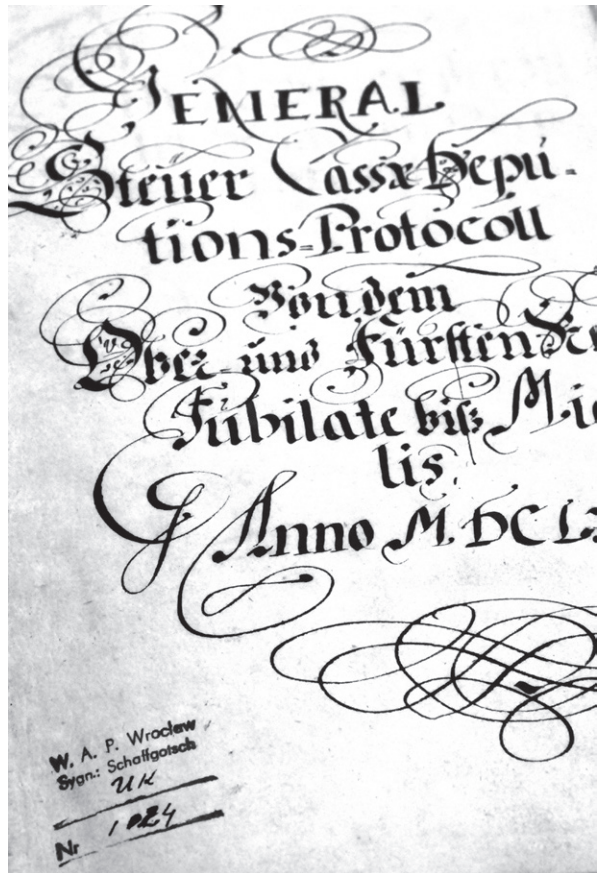 GENERAL
Steüer Cassæ Depu-
tions-Protocoll
Von dem
Ober und Fürsten
Jubilate biß
lis.
Anno M.DCL
W. A. P. Wrocław
Sygn.: Schaffgotsch
UK
Nr 1024